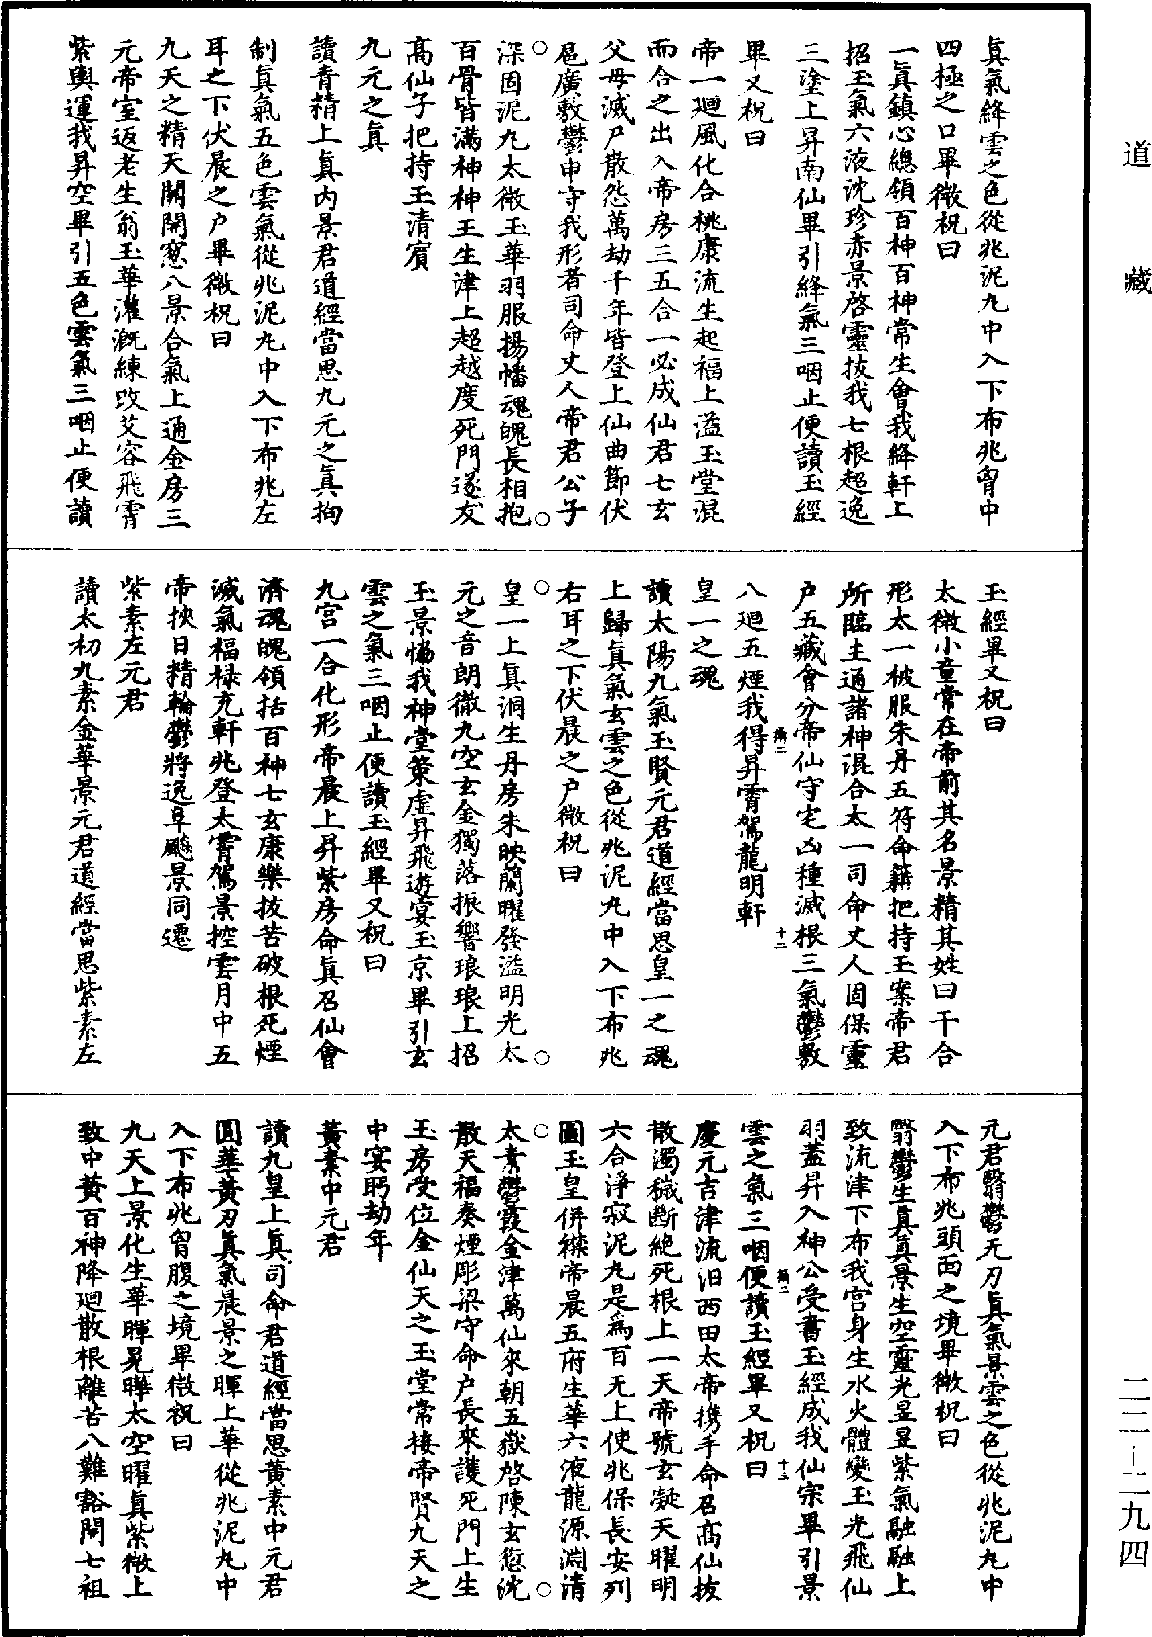 道藏
眞氣絳雲之色從兆泥丸中入下布兆胷中
四極之口畢微祝曰
一眞鎮心總領百神百神常生會我絳軒上
招玉氣六液沈珍赤景啓靈拔我七根超逸
三塗上昇南仙畢引絳氣三咽止便讀玉經
畢又祝曰
帝一迴風化合桃康流生起福上溢玉堂混
而合之出入帝房三五合一必成仙君七玄
父母滅尸散怨萬劫千年皆登上仙曲節伏
扈廣敷鬱申守我形者司命丈人帝君公子
深固泥丸太微玉華羽服揚幡魂魄長相抱
百骨皆滿神神王生津上超越度死門遂友
高仙子把持玉清賔
九元之眞
讀青精上眞内景君道經當思九元之眞拘
制眞氣五色雲氣從兆泥丸中入下布兆左
耳之下伏晨之户畢微祝曰
九天之精天關開窓八景合氣上通金房三
元帝室返老生翁玉華灌溉練改艾容飛霄
紫輿運我昇空畢引五色雲氣三咽止便讀
玉經畢又祝曰
太微小童常在帝前其名景精其姓曰干合
形太一被服朱丹五符命籍把持玉案帝君
所臨主通諸神混合太一司命丈人固保靈
户五藏會分帝仙守宅凶種滅根三氣鬱敷
八迴五煙我得昇霄駕龍明軒
皇一之魂
讀太陽九氣玉賢元君道經當思皇一之魂
上歸眞氣玄雲之色從兆泥丸中入下布兆
右耳之下伏晨之户微祝曰
皇一上眞洞生丹房朱映蘭曜發溢明光太
元之音朗徹九空玄金獨落振響琅琅上招
玉景愶我神堂策虛昇飛遊宴玉京畢引玄
雲之氣三咽止便讀玉經畢又祝曰
九宮一合化形帝晨上昇紫房命眞召仙會
濟魂魄領括百神七玄康樂拔苦破根死煙
滅氣福禄充軒兆登太霄駕景控雲月中五
帝挾日精輪鬱將逸阜飈景同遷
紫素左元君
讀太初九素金華景元君道經當思紫素左
元君翳鬱无刃眞氣景雲之色從兆泥丸中
入下布兆頭面之境畢微祝曰
翳鬱生眞眞景生空靈光昱昱紫氣融融上
致流津下布我宮身生水火體變玉光飛仙
羽蓋昇入神公受書玉經成我仙宗畢引景
雲之氣三咽便讀玉經畢又祝曰
慶元吉津流汨西田太帝携手命召高仙拔
散濁穢斷絶死根上一天帝號玄凝天曜明
六合淨寂泥丸是爲百无上使兆保長安列
圖玉皇併襟帝晨五府生華六液龍源淵清
太素鬱霞金津萬仙來朝五嶽啓陳玄愆沈
散天福奏煙彫梁守命户長來護死門上生
玉房受位金仙天之玉堂常接帝賢九天之
中安眄劫年
黃素中元君
讀九皇上眞司命君道經當思黃素中元君
圓華黃刃眞氣晨景之暉上華從兆泥丸中
入下布兆胷腹之境畢微祝曰
九天上景化生華暉晃曄太空曜眞紫微上
致中黃百神降迴散根離苦八難豁開七祖
二二–二九四